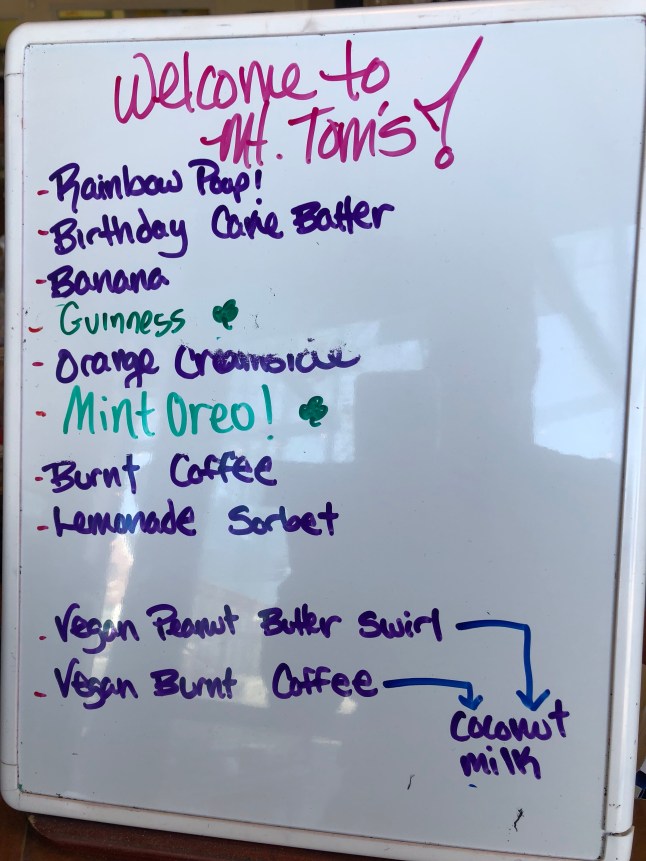 Welcome to
Mt. Tom's!
- Rainbow Poop!
- Birthday Cake Batter
- Banana
- Guinness
- Orange Creamsicle
- Mint Oreo!
- Burnt Coffee
- Lemonade Sorbet
- Vegan Peanut Butter Swirl
- Vegan Burnt Coffee
Coconut
milk